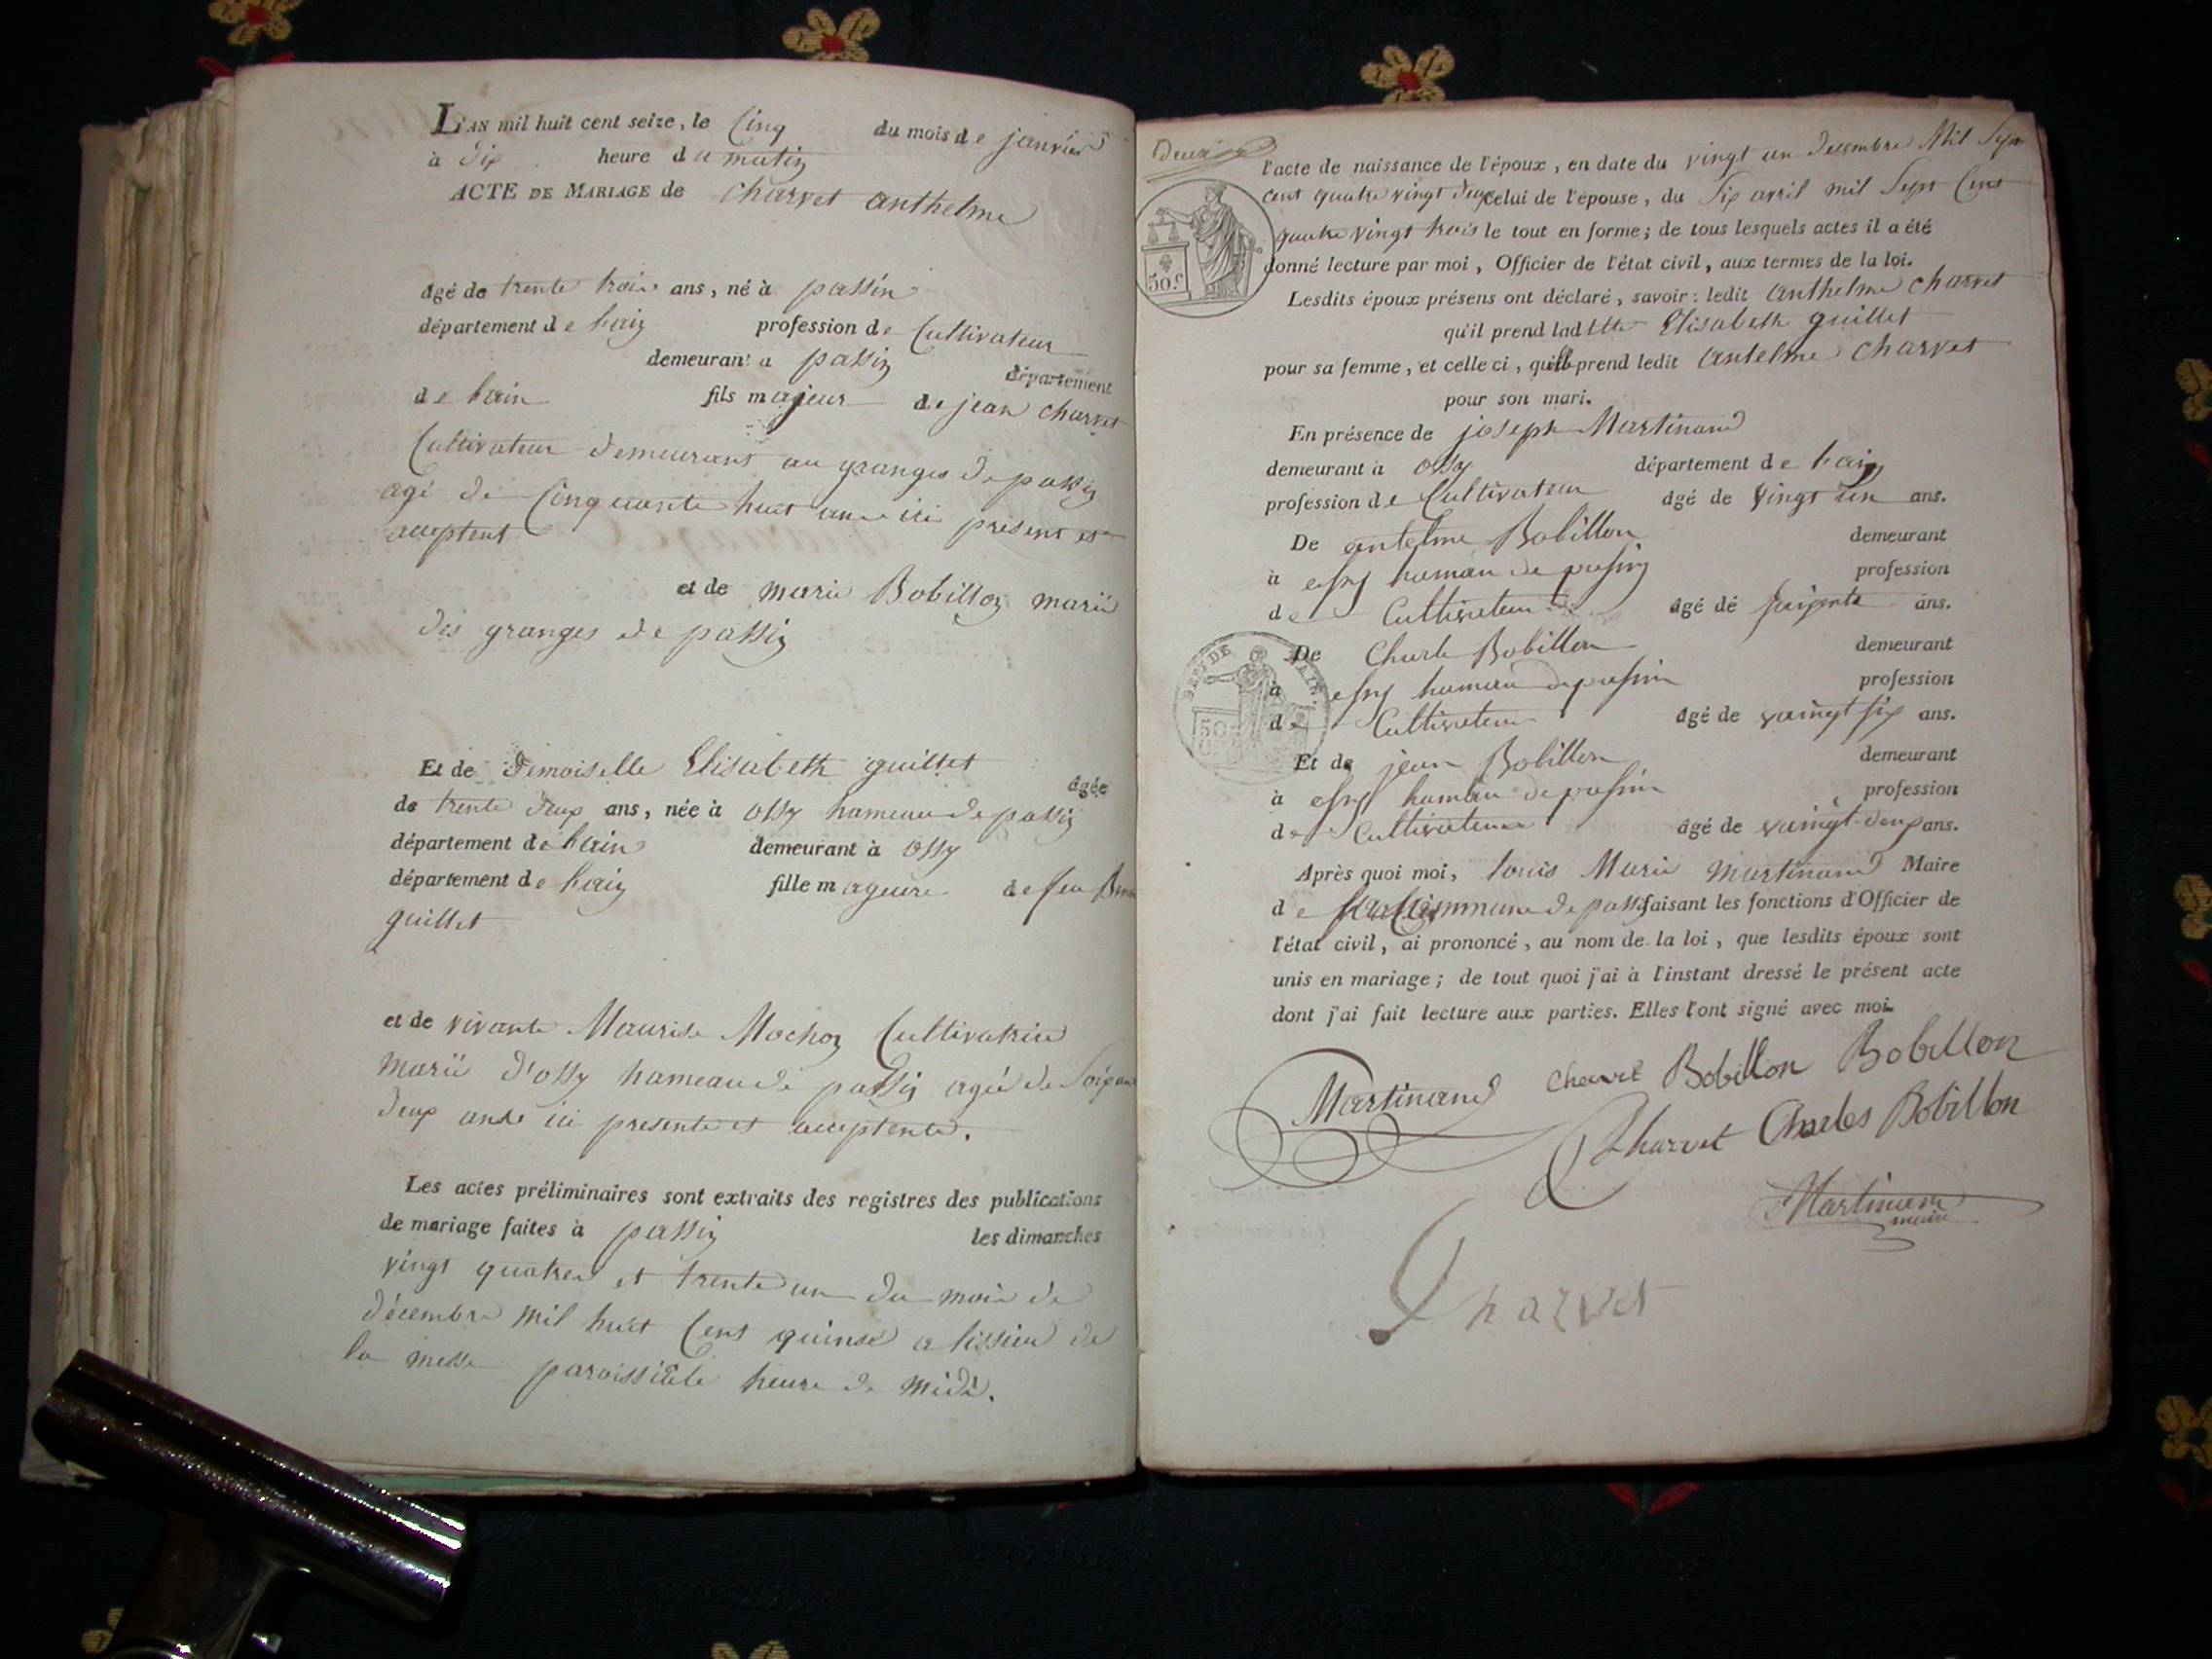 L'AN mil huit cent seize, le Cinq du mois de janvier
à dix heure du matin
ACTE DE MARIAGE de Charvet anthelme
âgé de trente trois ans, né à passin
département de lain profession de Cultivateur
demeurant a passin département
de lain fils majeur de jean charvet
Cultivateur demeurant au granges de passin
agé de Cinquante huit ans ici présent et
acceptent
et de marie Bobillon marié
des granges de passin
Et de Demoiselle Elisabeth guillet âgée
de trente deux ans, née à ossy hameau de passin
département de lain demeurant à ossy
département de lain fille mageure de feu
guillet
et de vivante Maurise Mochon Cultivatrice
marié d'ossy hameau de passin agée de Soixan
deux ans ici presente et acceptente.
Les actes préliminaires sont extraits des registres des publications
de mariage faites à passin les dimanches
vingt quatre et trente un du mois de
décembre mil huit Cent quinse a lissieu de
la messe paroissiale heure de midi.
Deux
50.c
l'acte de naissance de l'époux, en date du vingt un decembre Mil Sept
cent quatre vingt deux celui de l'épouse, du Six avril mil Sept Cent
quatre vingt trois le tout en forme; de tous lesquels actes il a été
donné lecture par moi, Officier de l'état civil, aux termes de la loi.
Lesdits époux présens ont déclaré, savoir: ledit Anthelme charvet
qu'il prend laditte Elisabeth guillet
pour sa femme, et celle ci, qu'elle prend ledit Antelme Charvet
pour son mari.
En présence de joseph Martinand
demeurant à ossy département de lain
profession de Cultivateur âgé de vingt un ans.
De antelme Bobillon demeurant
à essy hamau de passin profession
de Cultivateur âgé de soixante ans.
De Charle Bobillon demeurant
à essy hamau de passin profession
de Cultivateur âgé de vaingt six ans.
Et de jean Bobillon demeurant
à essy hamau de passin profession
de Cultivateur âgé de vaingt deux ans.
Après quoi moi, louis Marie Martinand Maire
de commune de passin faisant les fonctions d'Officier de
l'état civil, ai prononcé, au nom de la loi, que lesdits époux sont
unis en mariage; de tout quoi j'ai à l'instant dressé le présent acte
dont j'ai fait lecture aux parties. Elles l'ont signé avec moi
Martinand Charvet Bobillon Bobillon
Charvet Charles Bobillon
Martinand
maire
Charvet